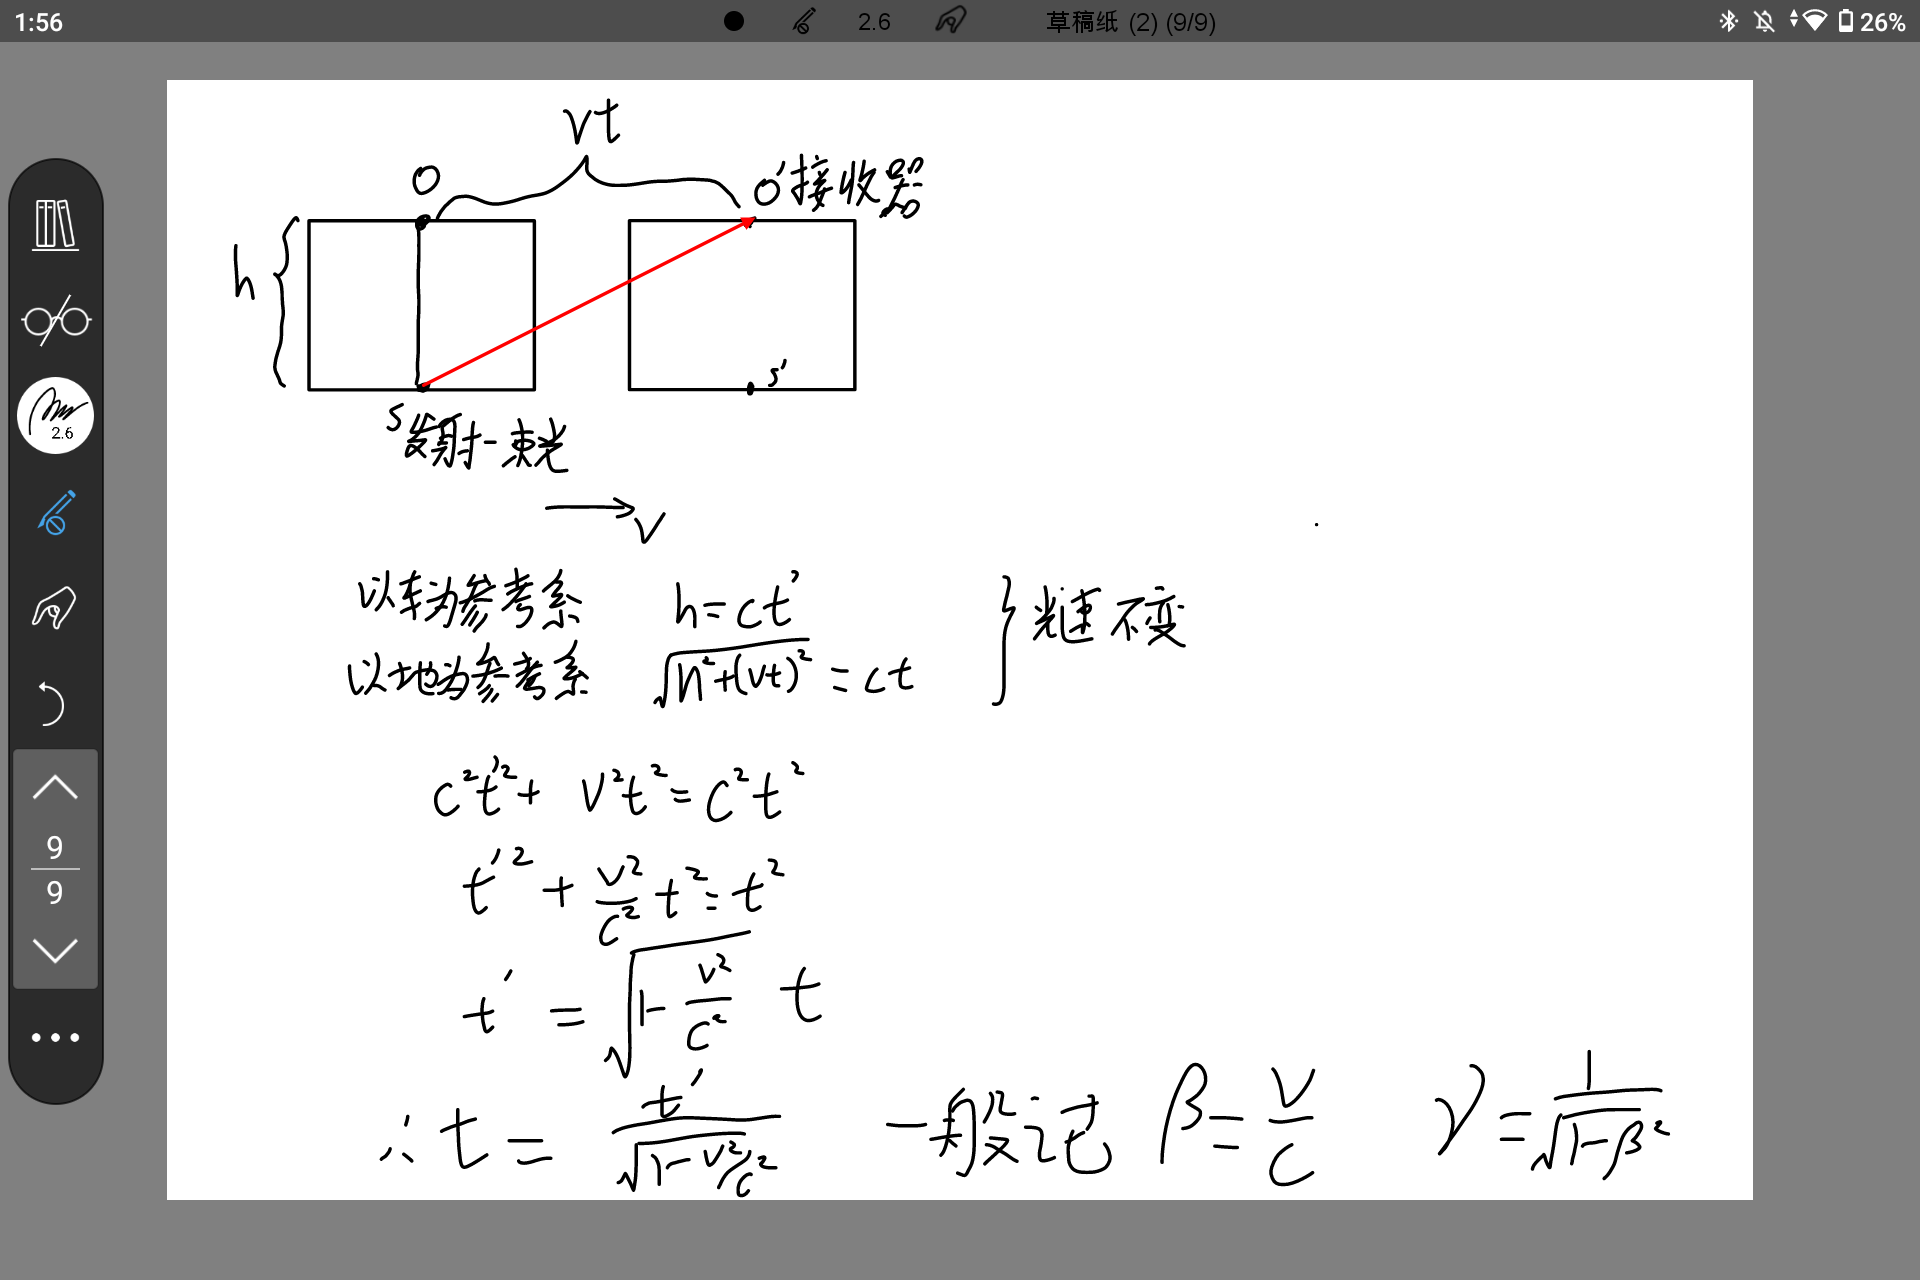 1:56
2.6
草稿纸 (2) (9/9)
26%
vt
O
O'接收器
h
s'
S发射一束光
2.6
v
以车为参考系 h=ct'
以地为参考系 √(h²+(vt)²) = ct
} 光速不变
c²t'²+ v²t²=c²t²
t'² + v²/c² t²=t²
t' = √(1-v²/c²) t
∴ t = t'/√(1-v²/c²) 一般记 β=v/c γ=1/√(1-β²)
9
9